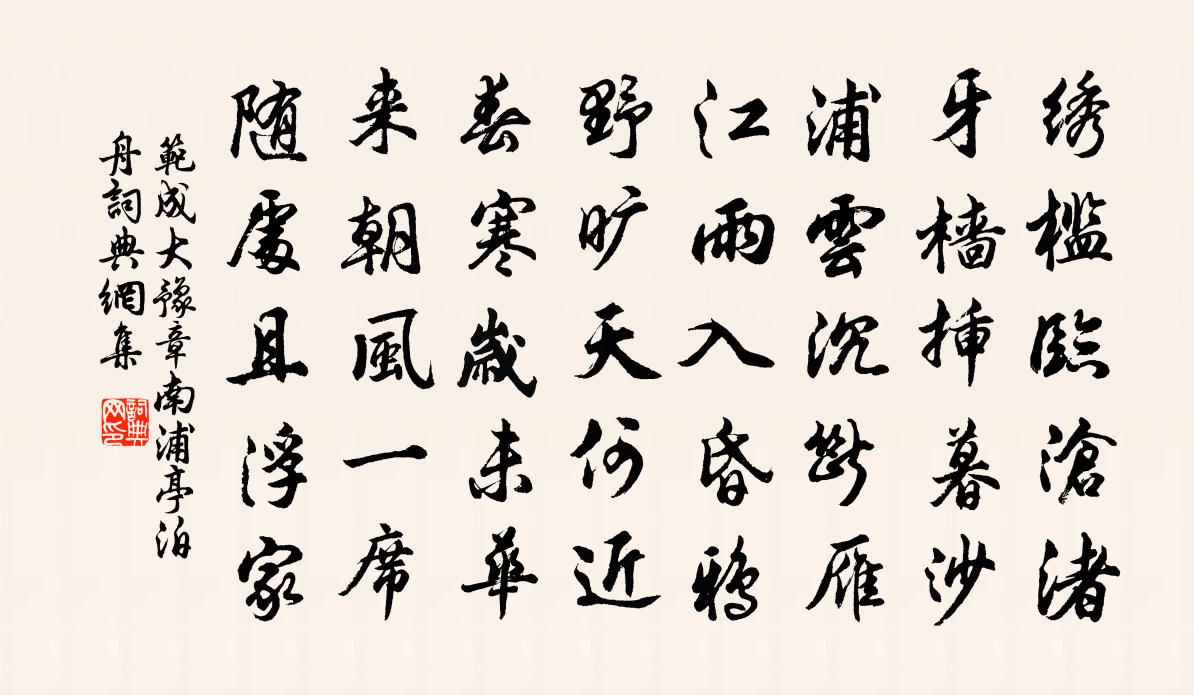 绣槛臨滄渚
牙檣挿暮沙
浦雲沉斷雁
江雨入昏鴉
野旷天何近
春寒歲未華
来朝風一席
随處且浮家
範成大豫章南浦亭泊
舟詞典網集
詞典
网印